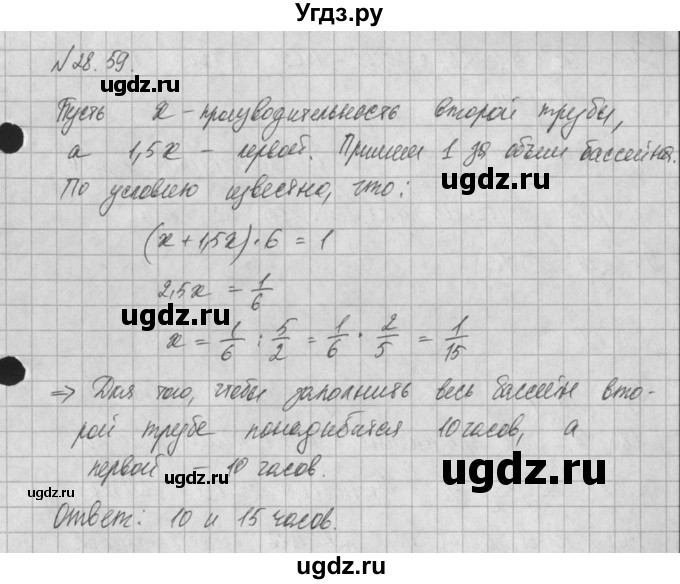 Угдз.ру
№28.59.
Пусть x - производительность второй трубы,
а 1,5x - первой. Примем 1 за объем бассейна.
По условию известно, что:
(x+1,5x)·6=1
2,5x = 1/6
x = 1/6 : 5/2 = 1/6 · 2/5 = 1/15
⇒ Для того, чтобы заполнить весь бассейн вто-
рой трубе понадобится 10 часов, а
первой - 10 часов.
Ответ: 10 и 15 часов.
ugdz.ru
ugdz.ru
ugdz.ru
ugdz.ru
ugdz.ru
ugdz.ru
ugdz.ru
ugdz.ru
ugdz.ru